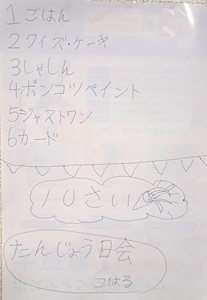 1ごはん
2クイズ・ケーキ
3しゃしん
4ポンコツペイント
5ジャストワン
6カード
10さい
たんじょう日会
こはる